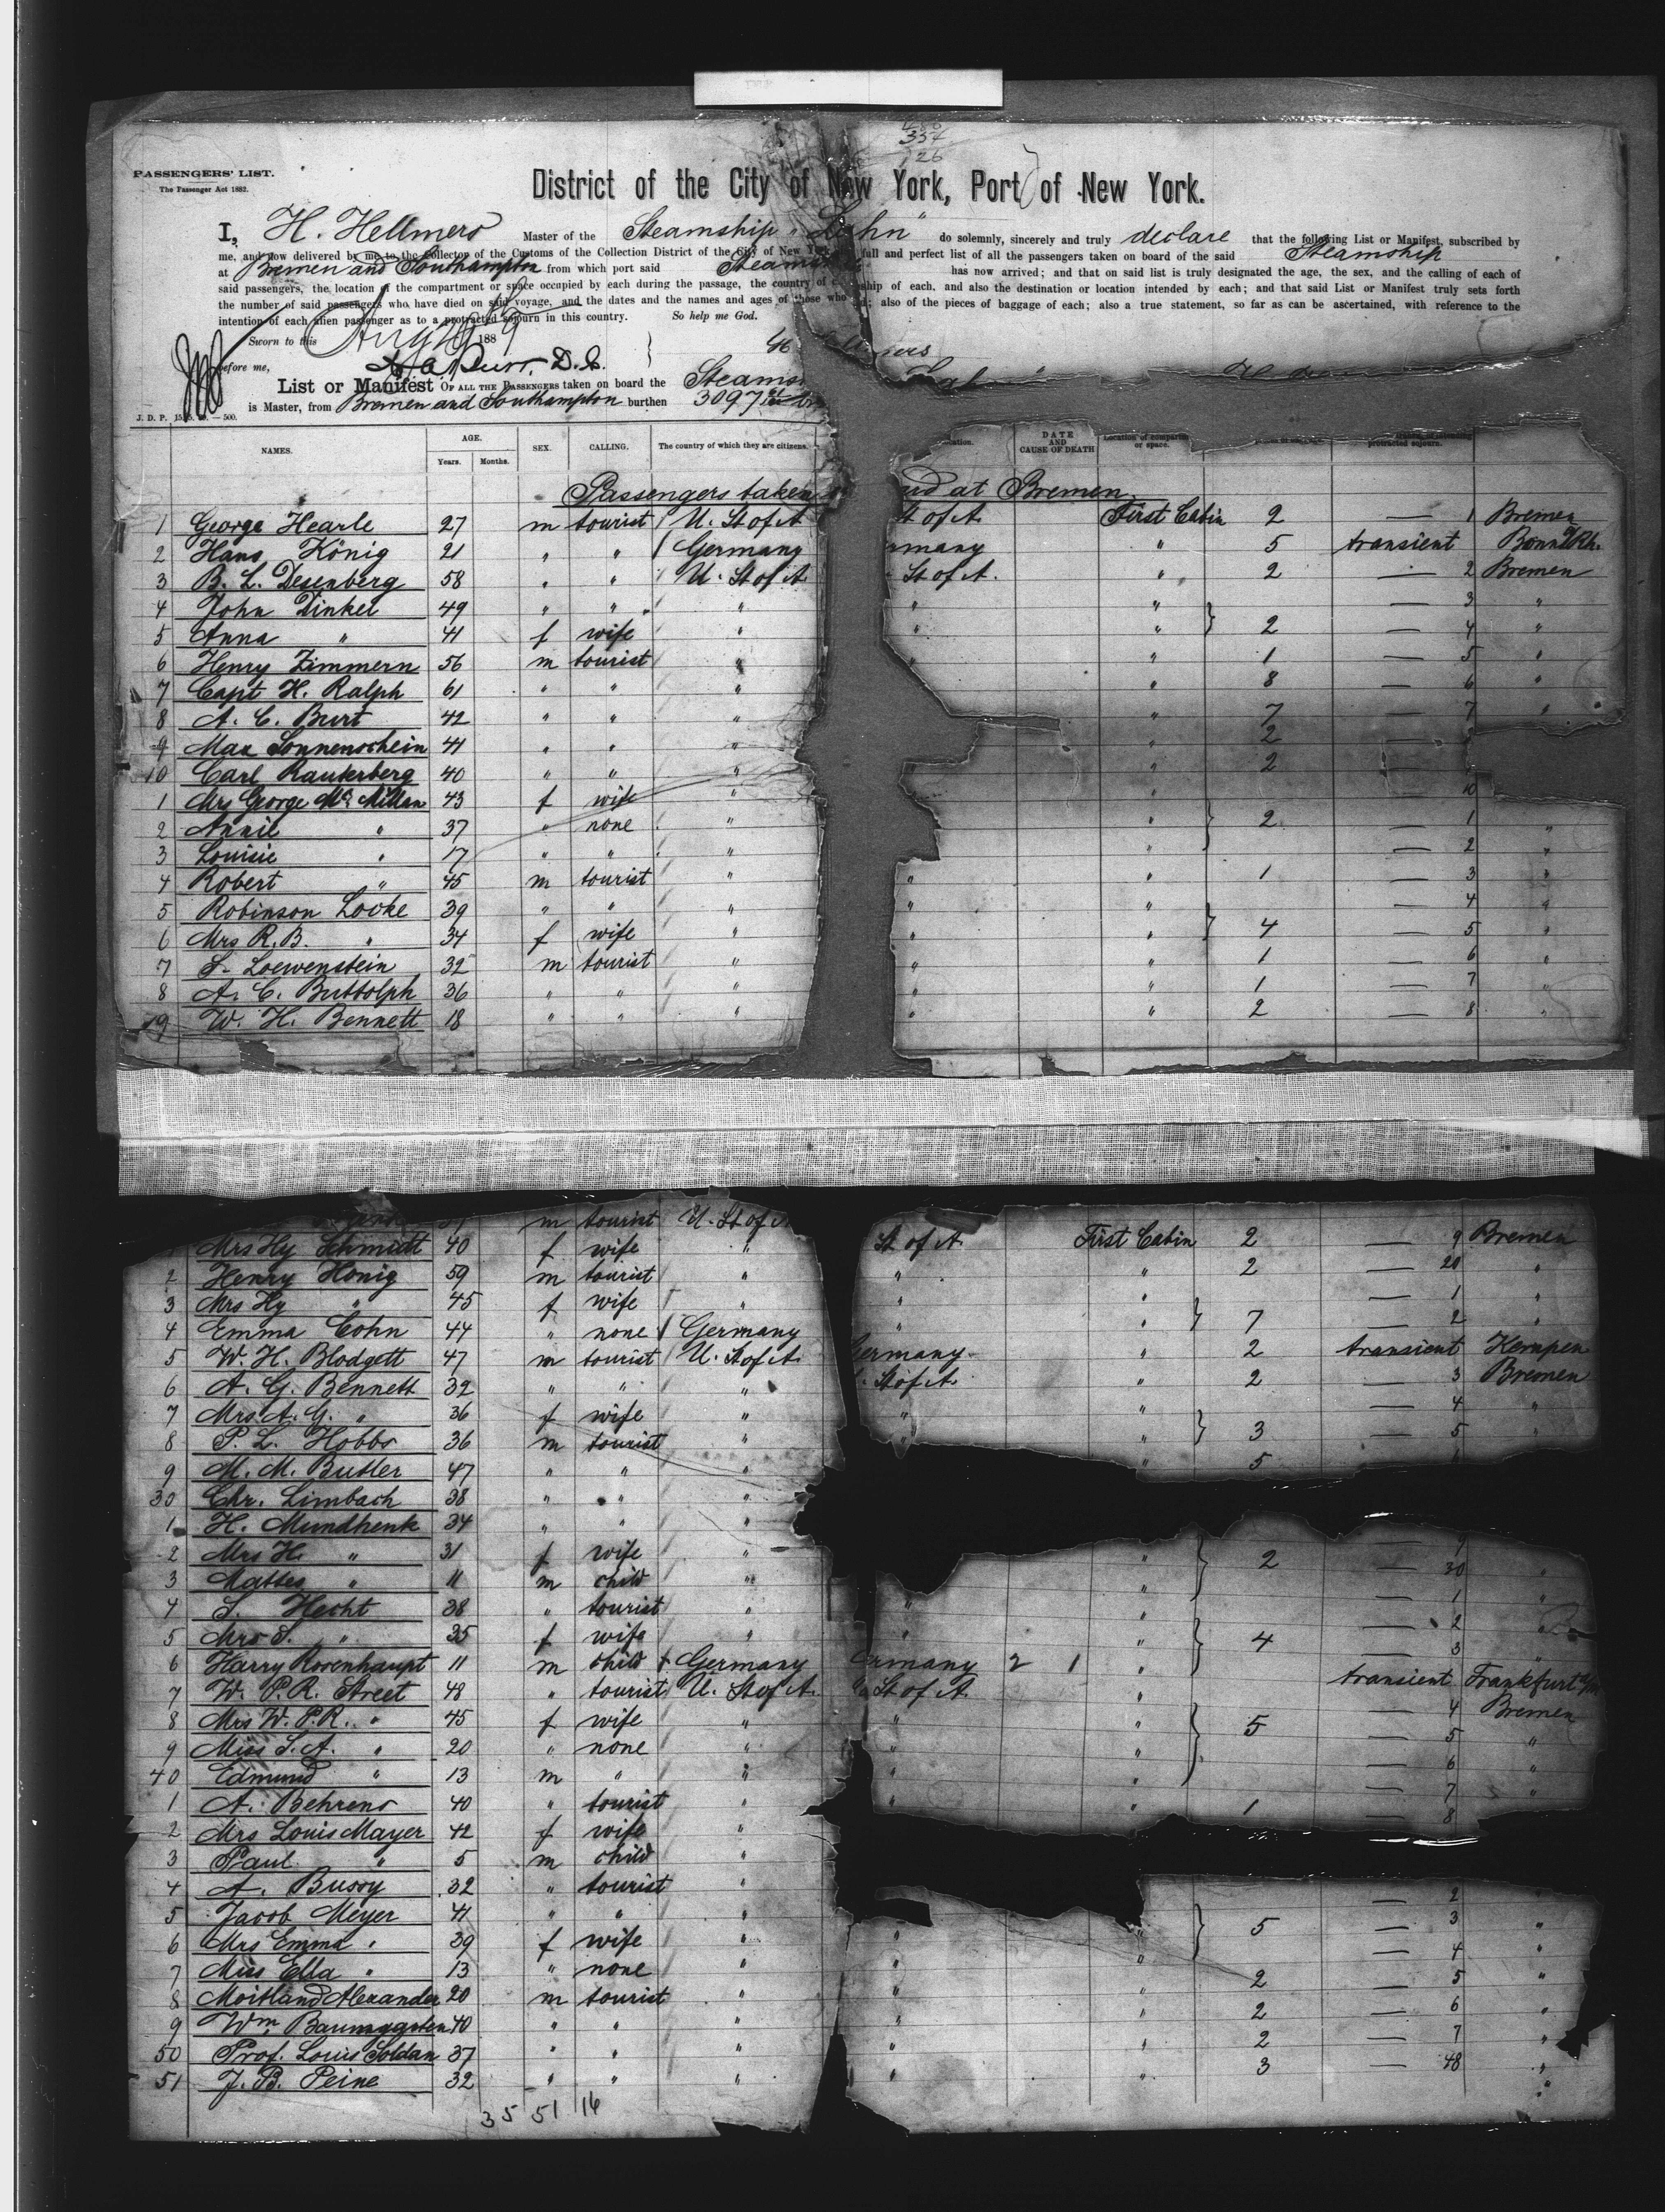 354
126
PASSENGERS' LIST.
The Passenger Act 1882.
District of the City of New York, Port of New York.
I, H. Hellmers Master of the Steamship "Lahn" do solemnly, sincerely and truly declare that the following List or Manifest, subscribed by
me, and now delivered by me to the Collector of the Customs of the Collection District of the City of New York full and perfect list of all the passengers taken on board of the said Steamship
at Bremen and Southampton from which port said has now arrived; and that on said list is truly designated the age, the sex, and the calling of each of
said passengers, the location of the compartment or space occupied by each during the passage, the country of of each, and also the destination or location intended by each; and that said List or Manifest truly sets forth
the number of said passengers who have died on said voyage, and the dates and the names and ages of those who also of the pieces of baggage of each; also a true statement, so far as can be ascertained, with reference to the
intention of each alien passenger as to a protracted sojourn in this country. So help me God.
Sworn to this 1889
before me, D.C.
List or Manifest OF ALL THE PASSENGERS taken on board the
is Master, from Bremen and Southampton burthen 3097
NAMES. AGE. Years. Months. SEX. CALLING. The country of which they are citizens. DATE AND CAUSE OF DEATH Location of or space.
Passengers taken at Bremen
1 George Hearle 27 m tourist U. St of A St of A. First Cabin 2 — 1 Bremen
2 Hans König 21 " " Germany " 5 transient Bonn a/Rh.
3 B. L. Desenberg 58 " " U. St of A St of A. " 2 — 2 Bremen
4 John Dinkel 49 " " " " " — 3 "
5 Anna " 41 f wife " " " 2 — 4 "
6 Henry Zimmern 56 m tourist " " " 1 — 5 "
7 Capt H. Ralph 61 " " " " 8 — 6 "
8 A. C. Burt 42 " " " " 7 — 7 "
9 Max Sonnenschein 41 " " " " 2
10 Carl Rauterberg 40 " " " " 2
1 Mrs George Mc Millan 43 f wife " " — 10
2 Annie " 37 " none " " 2 — 1 "
3 Louisie " 17 " " " " — 2 "
4 Robert " 45 m tourist " " " 1 — 3 "
5 Robinson Locke 39 " " " " " — 4 "
6 Mrs R. B. " 34 f wife " " " 4 — 5 "
7 L. Loewenstein 32 m tourist " " " 1 — 6 "
8 A. C. Buttolph 36 " " " " " 1 — 7 "
19 W. H. Bennett 18 " " " " " 2 — 8 "
m tourist U. St of A
Mrs Hy Schmidt 40 f wife " St of A. First Cabin 2 — 9 Bremen
2 Henry Honig 59 m tourist " " " 2 — 20 "
3 Mrs Hy " 45 f wife " " " — 1 "
4 Emma Cohn 44 " none Germany " " 7 — 2 "
5 W. H. Blodgett 47 m tourist U. St of A. Germany " 2 transient Kempen
6 A. G. Bennett 32 " " " St of A. " 2 — 3 Bremen
7 Mrs A. G. " 36 f wife " " " — 4 "
8 P. L. Hobbs 36 m tourist " " " 3 — 5 "
9 M. M. Butler 47 " " " " 5
30 Chr. Limbach 38 " " "
1 H. Mundhenk 34 " " "
2 Mrs H. " 31 f wife " "
3 Mattes " 11 m child " " 2 — 30 "
4 S. Hecht 38 " tourist " " " — 1 "
5 Mrs S. " 35 f wife " " " 4 — 2 "
6 Harry Rosenhaupt 11 m child Germany Germany 2 1 " — 3 "
7 W. P. R. Street 48 " tourist U. St of A. St of A. " transient Frankfurt a/M
8 Mrs W. P. R. " 45 f wife " " " 5 — 4 Bremen
9 Miss S. A. " 20 " none " " " — 5 "
40 Edmund " 13 m " " " " — 6 "
1 A. Behrens 40 " tourist " " " — 7 "
2 Mrs Louis Mayer 42 f wife " 1 — 8
3 Paul " 5 m child "
4 A. Bussy 32 " tourist " — 2
5 Jacob Meyer 41 " " " " " 5 — 3 "
6 Mrs Emma " 39 f wife " " " — 4 "
7 Miss Ella " 13 " none " " " 2 — 5 "
8 Moitland Alexander 20 m tourist " " " 2 — 6 "
9 Wm. Baumggsten 40 " " " " " 2 — 7 "
50 Prof. Louis Soldan 37 " " " " " 3 — 48 "
51 J. B. Peine 32 " " " "
35 51 16